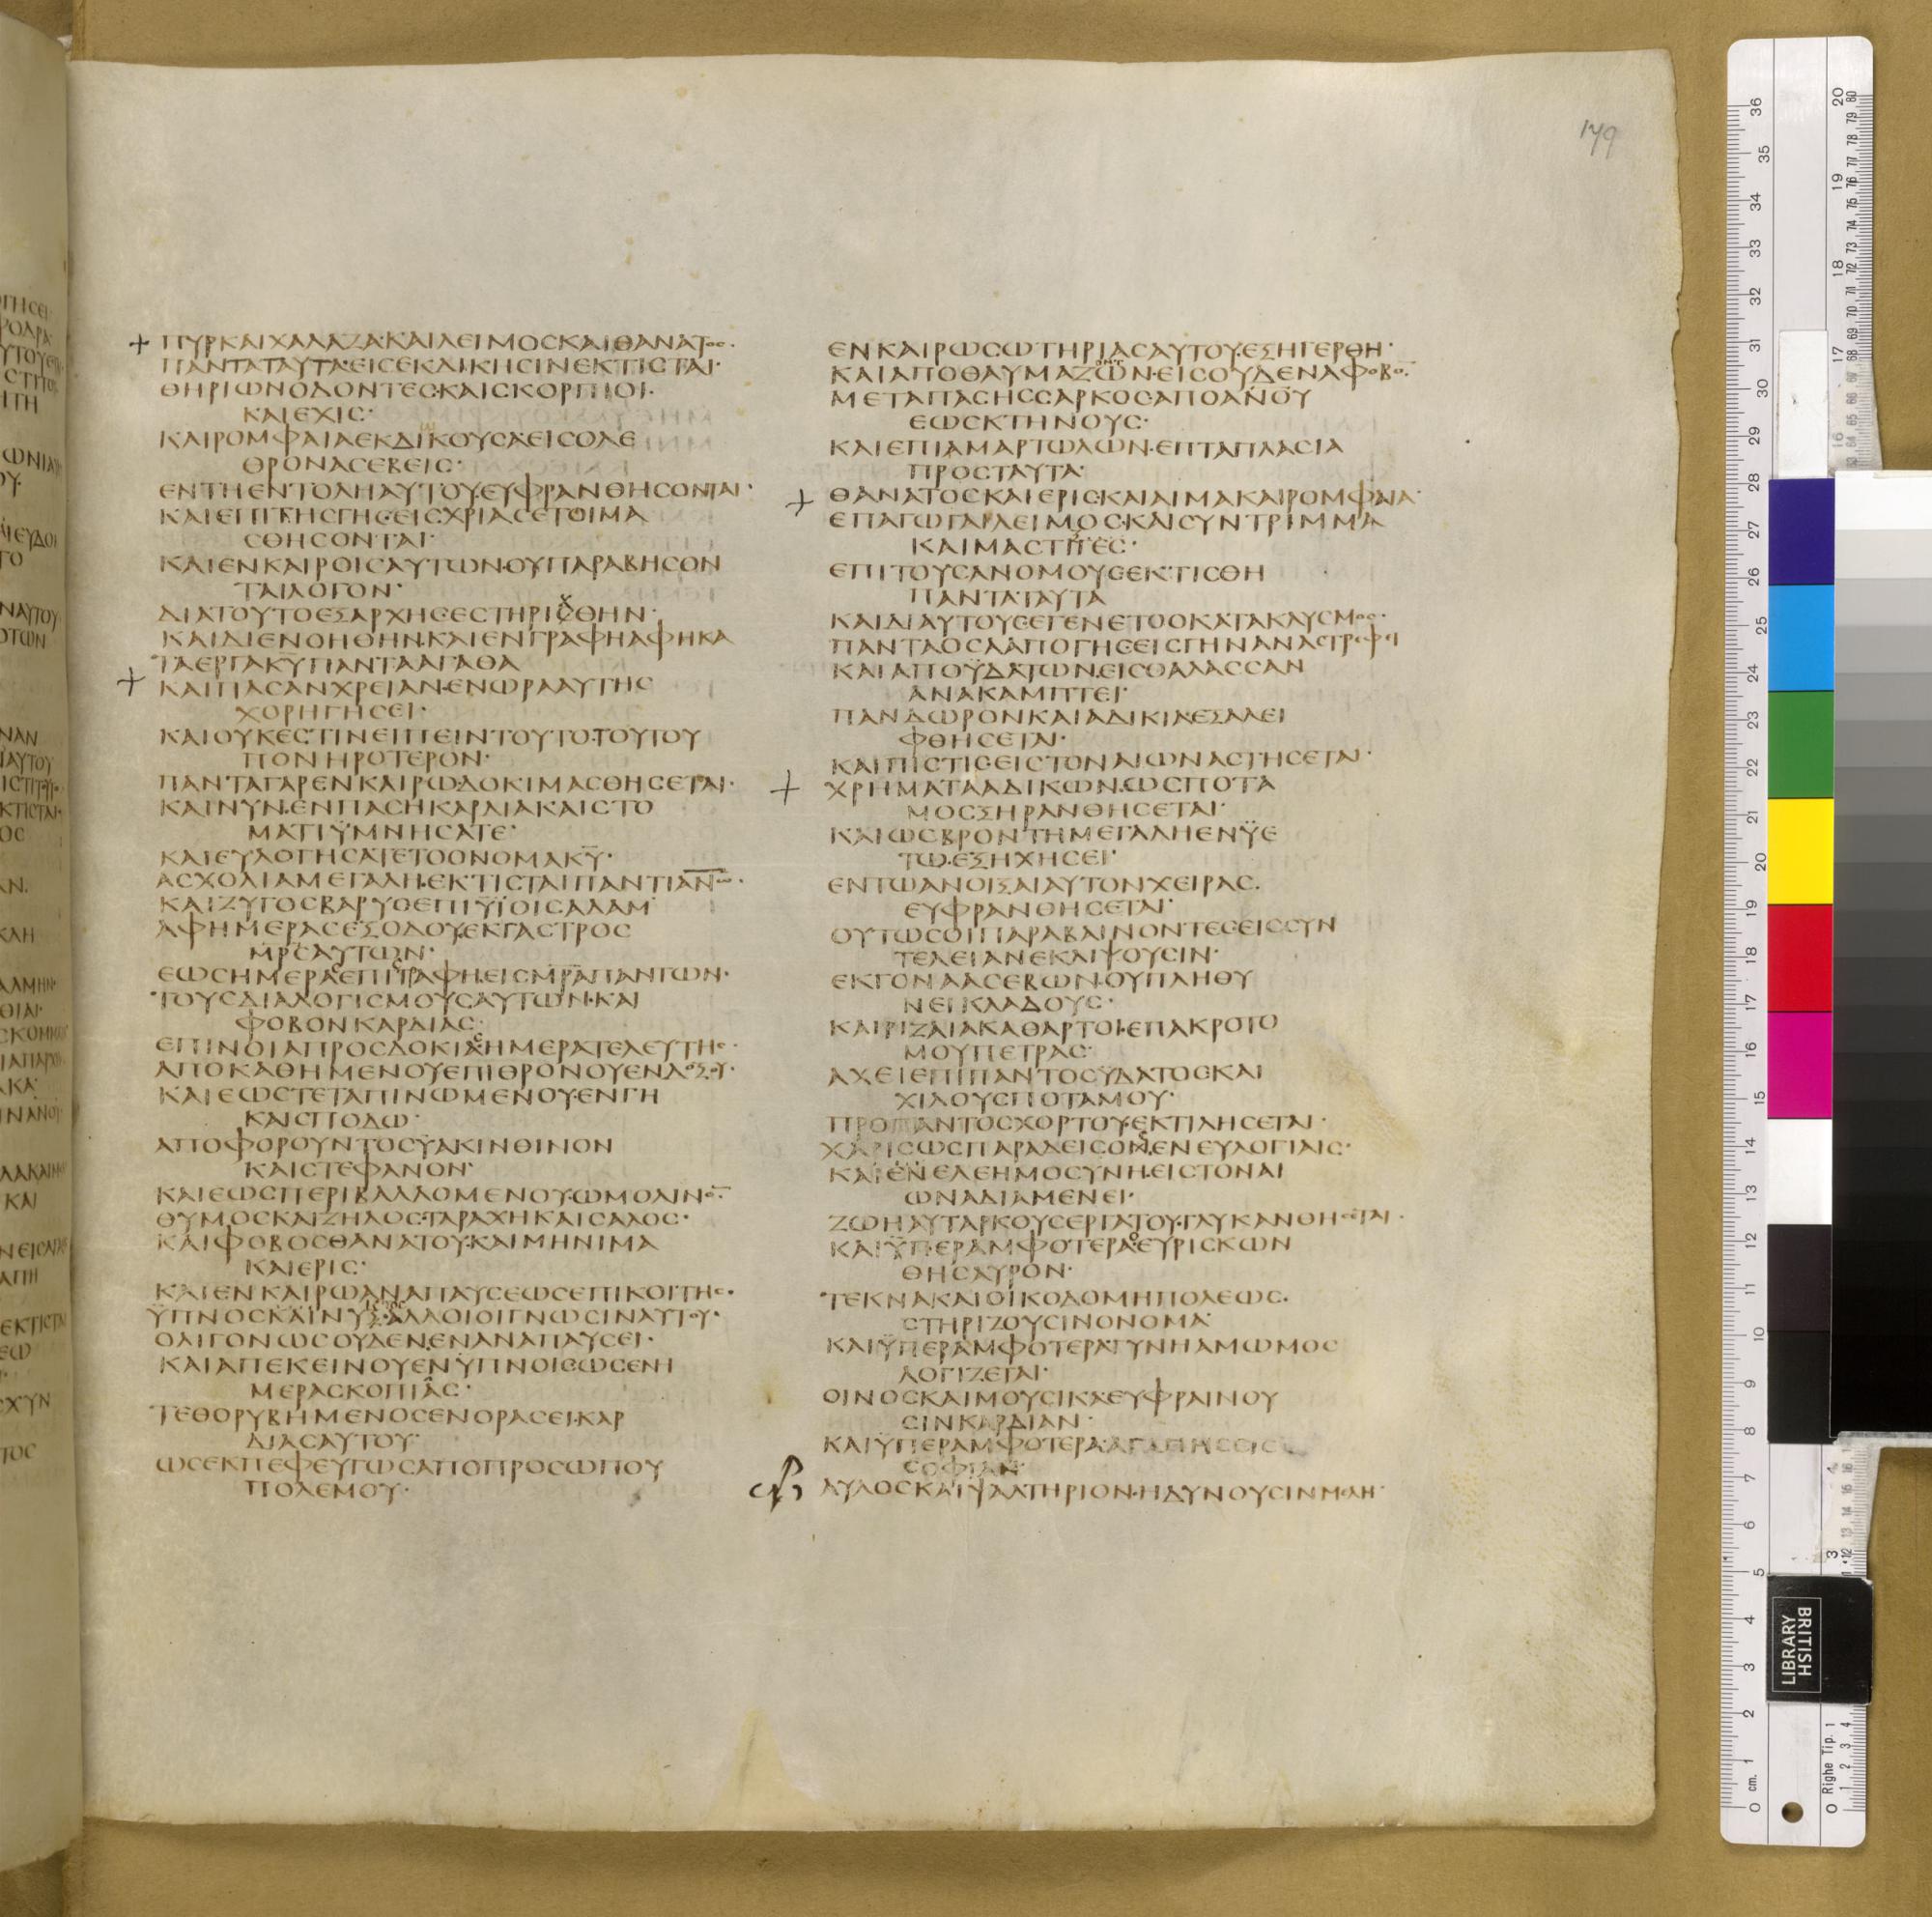 179
ΠΥΡΚΑΙΧΑΛΑΖΑ·ΚΑΙΛΕΙΜΟCΚΑΙΘΑΝΑΤΟC·
ΠΑΝΤΑΤΑΥΤΑ·ΕΙCΕΚΔΙΚΗCΙΝΕΚΤΙCΤΑΙ·
ΘΗΡΙΩΝΟΔΟΝΤΕC·ΚΑΙCΚΟΡΠΙΟΙ·
ΚΑΙΕΧΙC·
ΚΑΙΡΟΜΦΑΙΑΕΚΔΙΚΟΥCΑΕΙCΟΛΕ
ΘΡΟΝΑCΕΒΕΙC·
ΕΝΤΗΕΝΤΟΛΗΑΥΤΟΥ·ΕΥΦΡΑΝΘΗCΟΝΤΑΙ·
ΚΑΙΕΠΙΤΗCΓΗC·ΕΙCΧΡΙΑCΕΤΟΙΜΑ
CΘΗCΟΝΤΑΙ·
ΚΑΙΕΝΚΑΙΡΟΙCΑΥΤΩΝ·ΟΥΠΑΡΑΒΗCΟΝ
ΤΑΙΛΟΓΟΝ·
ΔΙΑΤΟΥΤΟΕΞΑΡΧΗCΕCΤΗΡΙCΘΗΝ·
ΚΑΙΔΙΕΝΟΗΘΗΝ·ΚΑΙΕΝΓΡΑΦΗΑΦΗΚΑ
ΤΑΕΡΓΑΚΥΠΑΝΤΑΑΓΑΘΑ
ΚΑΙΠΑCΑΝΧΡΕΙΑΝ·ΕΝΩΡΑΑΥΤΗC
ΧΟΡΗΓΗCΕΙ·
ΚΑΙΟΥΚΕCΤΙΝΕΙΠΕΙΝΤΟΥΤΟ·ΤΟΥΤΟΥ
ΠΟΝΗΡΟΤΕΡΟΝ·
ΠΑΝΤΑΓΑΡΕΝΚΑΙΡΩ·ΔΟΚΙΜΑCΘΗCΕΤΑΙ·
ΚΑΙΝΥΝ·ΕΝΠΑCΗΚΑΡΔΙΑΚΑΙCΤΟ
ΜΑΤΙΫΜΝΗCΑΤΕ·
ΚΑΙΕΥΛΟΓΗCΑΤΕΤΟΟΝΟΜΑΚΥ·
ΑCΧΟΛΙΑΜΕΓΑΛΗ·ΕΚΤΙCΤΑΙΠΑΝΤΙΑΝΩ·
ΚΑΙΖΥΓΟCΒΑΡΥCΕΠΙΥΪΟΙCΑΔΑΜ
ΑΦΗΜΕΡΑCΕΞΟΔΟΥ·ΕΚΓΑCΤΡΟC
ΜΡCΑΥΤΩΝ·
ΕΩCΗΜΕΡΑCΕΠΙΤΑΦΗ·ΕΙCΜΡΑΠΑΝΤΩΝ·
ΤΟΥCΔΙΑΛΟΓΙCΜΟΥCΑΥΤΩΝ·ΚΑΙ
ΦΟΒΟΝΚΑΡΔΙΑC·
ΕΠΙΝΟΙΑΠΡΟCΔΟΚΙΑCΗΜΕΡΑΤΕΛΕΥΤΗC·
ΑΠΟΚΑΘΗΜΕΝΟΥΕΠΙΘΡΟΝΟΥΕΝΔΟΞΟΥ·
ΚΑΙΕΩCΤΕΤΑΠΙΝΩΜΕΝΟΥ·ΕΝΓΗ
ΚΑΙCΠΟΔΩ·
ΑΠΟΦΟΡΟΥΝΤΟCΫΑΚΙΝΘΙΝΟΝ
ΚΑΙCΤΕΦΑΝΟΝ·
ΚΑΙΕΩCΠΕΡΙΒΑΛΛΟΜΕΝΟΥ·ΩΜΟΛΙΝΟΝ·
ΘΥΜΟCΚΑΙΖΗΛΟC·ΤΑΡΑΧΗΚΑΙCΑΛΟC·
ΚΑΙΦΟΒΟCΘΑΝΑΤΟΥ·ΚΑΙΜΗΝΙΜΑ
ΚΑΙΕΡΙC·
ΚΑΙΕΝΚΑΙΡΩΑΝΑΠΑΥCΕΩCΕΠΙΚΟΙΤΗC·
ΫΠΝΟC·ΑΛΛΟΙΟΙΓΝΩCΙΝΑΥΤΟΥ·
ΟΛΙΓΟΝΩCΟΥΔΕΝ·ΕΝΑΝΑΠΑΥCΕΙ·
ΚΑΙΑΠΕΚΕΙΝΟΥΕΝΫΠΝΟΙCΩCΕΝΗ
ΜΕΡΑCΚΟΠΙΑC·
ΤΕΘΟΡΥΒΗΜΕΝΟCΕΝΟΡΑCΕΙ·ΚΑΡ
ΔΙΑCΑΥΤΟΥ·
ΩCΕΚΠΕΦΕΥΓΩCΑΠΟΠΡΟCΩΠΟΥ
ΠΟΛΕΜΟΥ·
ΕΝΚΑΙΡΩCΩΤΗΡΙΑCΑΥΤΟΥ·ΕΞΗΓΕΡΘΗ·
ΚΑΙΑΠΟΘΑΥΜΑΖΩΝ·ΕΙCΟΥΔΕΝΑΦΟΒΟΝ·
ΜΕΤΑΠΑCΗCCΑΡΚΟCΑΠΟΑΝΟΥ
ΕΩCΚΤΗΝΟΥC·
ΚΑΙΕΠΙΑΜΑΡΤΩΛΩΝ·ΕΠΤΑΠΛΑCΙΑ
ΠΡΟCΤΑΥΤΑ·
ΘΑΝΑΤΟCΚΑΙΕΡΙC·ΚΑΙΑΙΜΑΚΑΙΡΟΜΦΑΙΑ·
ΕΠΑΓΩΓΑΙΛΕΙΜΟC·ΚΑΙCΥΝΤΡΙΜΜΑ
ΚΑΙΜΑCΤΙΓΕC·
ΕΠΙΤΟΥCΑΝΟΜΟΥCΕΚΤΙCΘΗ
ΠΑΝΤΑΤΑΥΤΑ
ΚΑΙΔΙΑΥΤΟΥCΕΓΕΝΕΤΟΟΚΑΤΑΚΛΥCΜΟC·
ΠΑΝΤΑΟCΑΑΠΟΓΗC·ΕΙCΓΗΝΑΝΑCΤΡΕΦΕΙ
ΚΑΙΑΠΟΫΔΑΤΩΝ·ΕΙCΘΑΛΑCCΑΝ
ΑΝΑΚΑΜΠΤΕΙ·
ΠΑΝΔΩΡΟΝΚΑΙΑΔΙΚΙΑΕΞΑΛΕΙ
ΦΘΗCΕΤΑΙ·
ΚΑΙΠΙCΤΙCΕΙCΤΟΝΑΙΩΝΑCΤΗCΕΤΑΙ·
ΧΡΗΜΑΤΑΑΔΙΚΩΝ·ΩCΠΟΤΑ
ΜΟCΞΗΡΑΝΘΗCΕΤΑΙ·
ΚΑΙΩCΒΡΟΝΤΗΜΕΓΑΛΗΕΝΫΕ
ΤΩ·ΕΞΗΧΗCΕΙ·
ΕΝΤΩΑΝΟΙΞΑΙΑΥΤΟΝΧΕΙΡΑC·
ΕΥΦΡΑΝΘΗCΕΤΑΙ·
ΟΥΤΩCΟΙΠΑΡΑΒΑΙΝΟΝΤΕC·ΕΙCCΥΝ
ΤΕΛΕΙΑΝΕΚΛΙΨΟΥCΙΝ·
ΕΚΓΟΝΑΑCΕΒΩΝ·ΟΥΠΛΗΘΥ
ΝΕΙΚΛΑΔΟΥC·
ΚΑΙΡΙΖΑΙΑΚΑΘΑΡΤΟΙ·ΕΠΑΚΡΟΤΟ
ΜΟΥΠΕΤΡΑC·
ΑΧΕΙΕΠΙΠΑΝΤΟCΫΔΑΤΟCΚΑΙ
ΧΙΛΟΥCΠΟΤΑΜΟΥ·
ΠΡΟΠΑΝΤΟCΧΟΡΤΟΥ·ΕΚΤΙΛΗCΕΤΑΙ·
ΧΑΡΙCΩCΠΑΡΑΔΕΙCΟCΕΝΕΥΛΟΓΙΑΙC·
ΚΑΙΕΝΕΛΕΗΜΟCΥΝΗ·ΕΙCΤΟΝΑΙ
ΩΝΑΔΙΑΜΕΝΕΙ·
ΖΩΗΑΥΤΑΡΚΟΥCΕΡΓΑΤΟΥ·ΓΛΥΚΑΝΘΗCΕΤΑΙ·
ΚΑΙΫΠΕΡΑΜΦΟΤΕΡΑΟΕΥΡΙCΚΩΝ
ΘΗCΑΥΡΟΝ·
ΤΕΚΝΑΚΑΙΟΙΚΟΔΟΜΗΠΟΛΕΩC·
CΤΗΡΙΖΟΥCΙΝΟΝΟΜΑ·
ΚΑΙΫΠΕΡΑΜΦΟΤΕΡΑΓΥΝΗΑΜΩΜΟC
ΛΟΓΙΖΕΤΑΙ·
ΟΙΝΟCΚΑΙΜΟΥCΙΚΑ·ΕΥΦΡΑΙΝΟΥ
CΙΝΚΑΡΔΙΑΝ·
ΚΑΙΫΠΕΡΑΜΦΟΤΕΡΑ·ΑΓΑΠΗCΕΙC
CΟΦΙΑΝ·
ΑΥΛΟCΚΑΙΨΑΛΤΗΡΙΟΝ·ΗΔΥΝΟΥCΙΝΜΕΛΗ·
BRITISH
LIBRARY
Righe Tip.
cm.